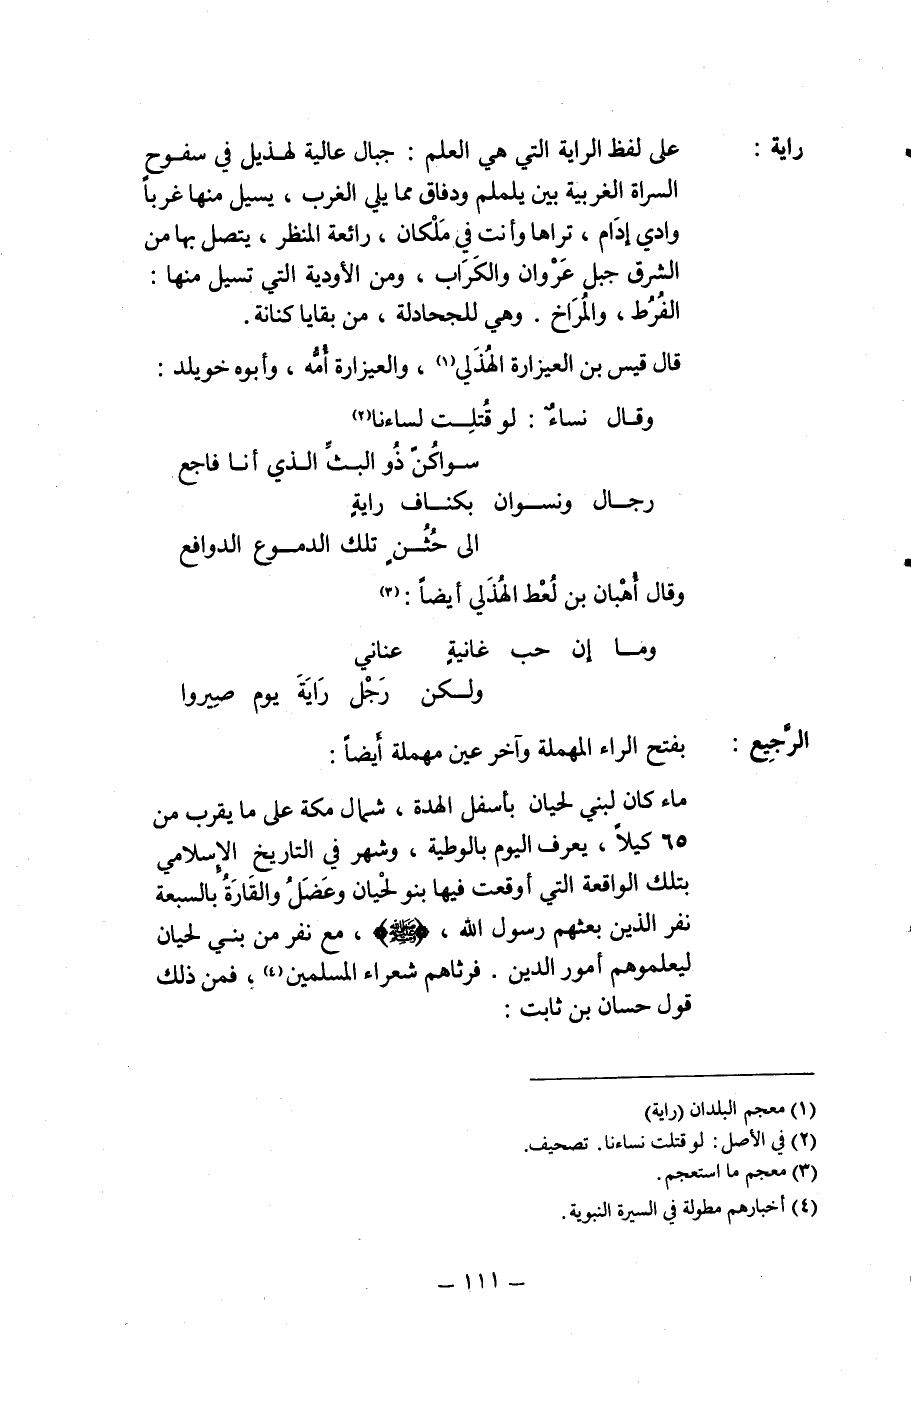 راية : على لفظ الراية التي هي العلم : جبال عالية لهذيل في سفوح
السراة الغربية بين يلملم ودفاق مما يلي الغرب ، يسيل منها غرباً
وادي إدَام ، تراها وأنت في مَلْكان ، رائعة المنظر ، يتصل بها من
الشرق جبل عَرْوان والكَرَاب ، ومن الأودية التي تسيل منها :
الفُرُط ، والمُرَاخ . وهي للجحادلة ، من بقايا كنانة .
قال قيس بن العيزارة الهُذَلي(١) ، والعيزارة أُمُّه ، وأبوه خويلد :
وقال نساءٌ : لو قُتلِت لساءنا(٢)
سواكُنّ ذُو البثِّ الذي أنا فاجع
رجال ونسوان بكناف رايةٍ
الى حُثُنٍ تلك الدموع الدوافع
وقال أُهْبان بن لُعْط الهُذَلي أيضاً :(٣)
وما إن حب غانيةٍ عناني
ولكن رَجْل رَايَةَ يوم صيِروا
الرَّجِيع : بفتح الراء المهملة وآخر عين مهملة أَيضاً :
ماء كان لبني لحيان بأسفل الهدة ، شمال مكة على ما يقرب من
٦٥ كيلاً ، يعرف اليوم بالوطية ، وشهر في التاريخ الإسلامي
بتلك الواقعة التي أوقعت فيها بنو لحْيان وعَضَلُ والقَارَةُ بالسبعة
نفر الذين بعثهم رسول الله ، ﴿ﷺ﴾ ، مع نفر من بني لحيان
ليعلموهم أمور الدين . فرثاهم شعراء المسلمين(٤) ، فمن ذلك
قول حسان بن ثابت :
(١) معجم البلدان (راية)
(٢) في الأصل : لو قتلت نساءنا . تصحيف .
(٣) معجم ما استعجم .
(٤) أخبارهم مطولة في السيرة النبوية .
– ١١١ –